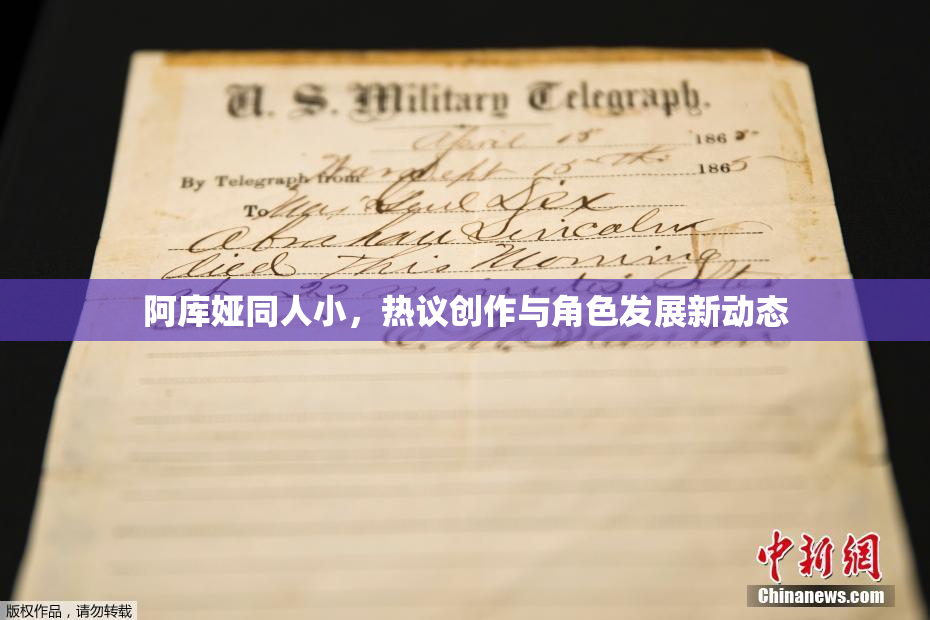 U. S. Military Telegraph.
April 15 1865
By Telegraph from War Dept 15th 1865
To Maj Genl Dix
Abraham Lincoln
died This Morning
at 22 minutes after
阿库娅同人小，热议创作与角色发展新动态
E. M. Stanton
中新網
Chinanews.com
版权作品，请勿转载